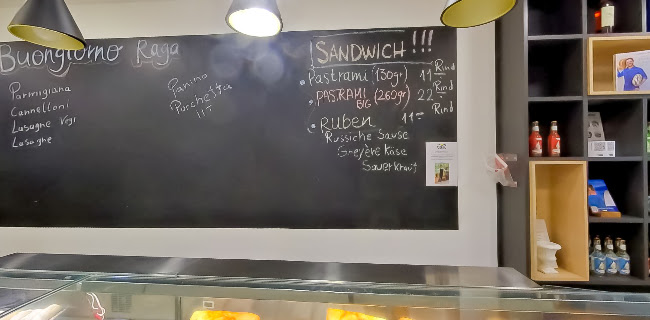 Buongiorno Raga
Parmigiana
Cannelloni
Lasagne Vegi
Lasagne
Panino
Porchetta
11-
SANDWICH!!!
Pastrami (130gr) 11- Rind
PASTRAMI BIG (260gr) 22- Rind
Ruben 11- Rind
Russiche Sause
Greyère Käse
Sauerkraut